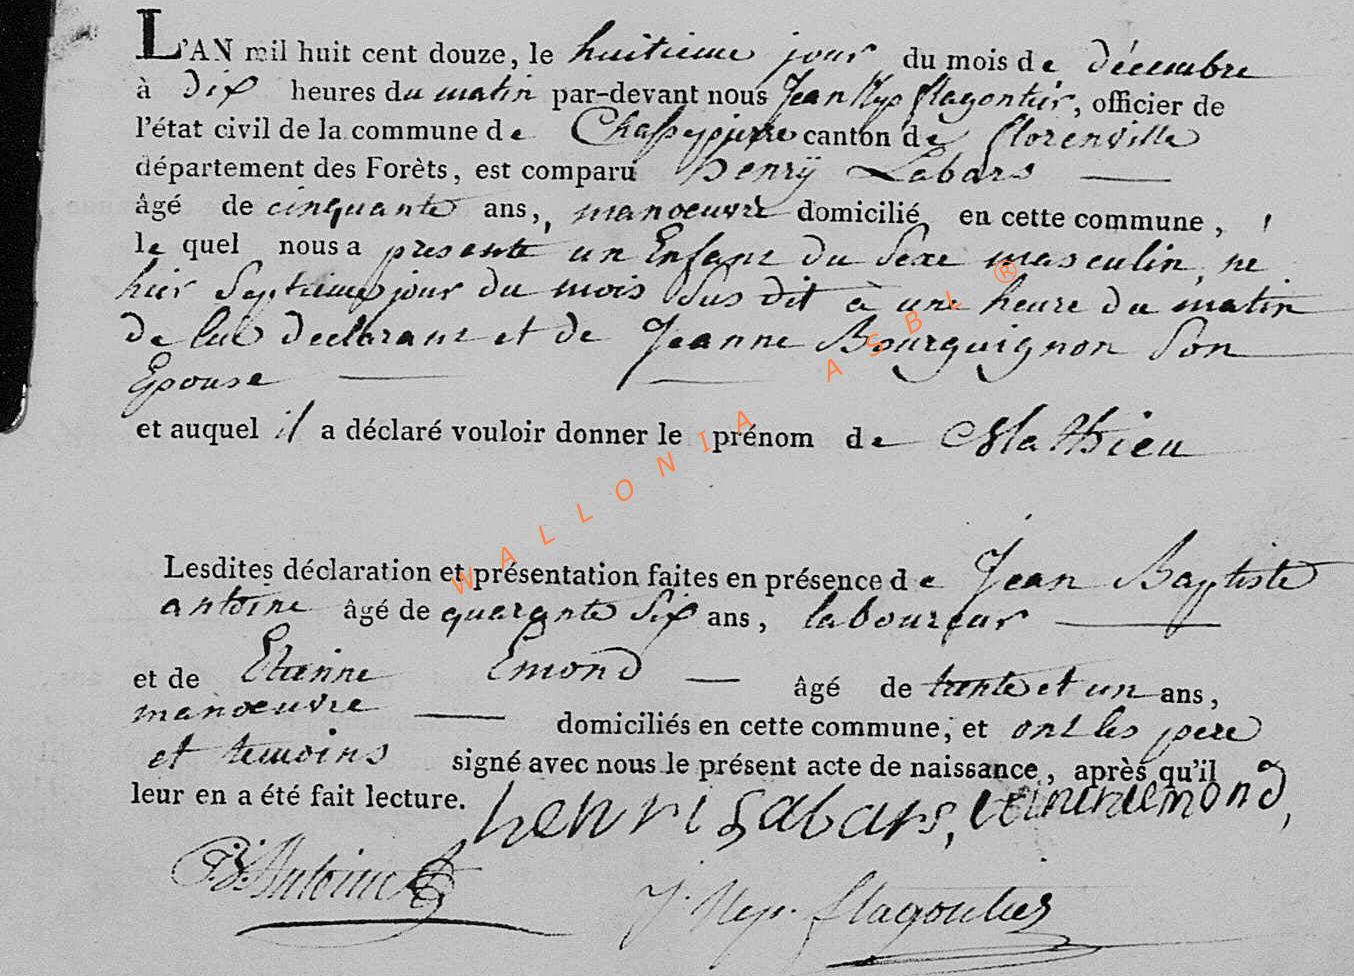 L'AN mil huit cent douze, le huitieme jour du mois de décembre
à dix heures du matin par-devant nous Jean Nep flagontier, officier de
l'état civil de la commune de Chassepierre canton de florenville
département des Forêts, est comparu henrÿ Labars
âgé de cinquante ans, manoeuvre domicilié en cette commune,
le quel nous a presenté un Enfant du Sexe masculin, ne
hier Septieme jour du mois Sus dit à une heure du matin
de lui declarant et de Jeanne Bourguignon Son
Epouse
et auquel il a déclaré vouloir donner le prénom de Mathieu
Lesdites déclaration et présentation faites en présence de Jean Baptiste
antoine âgé de quarante Six ans, laboureur
et de Etienne Emond âgé de trente et un ans,
manoeuvre domiciliés en cette commune, et ont les pere
et temoins signé avec nous le présent acte de naissance, après qu'il
leur en a été fait lecture. henri Labars, etienne emond,
J. B. Antoine
J. Nep. flagontier
WALLONIA ASBL ®